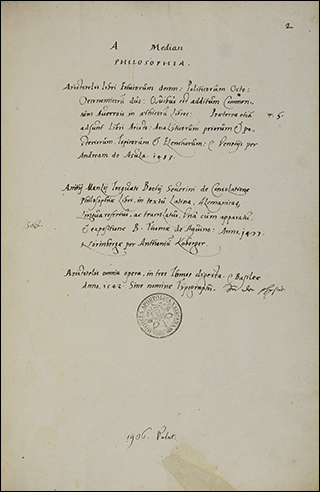 2
A Median
PHILOSOPHIA.
Aristotelis libri Ethicorum decem: Politicorum Octo:
Oeconomicorum duo: Quibus est additum Commen-
tum Averrois in ethicorum libros: Praeterea etiam
T. 5.
adsunt libri Aristo: Analiticorum priorum & po-
steriorum, topicorum & Elenchorum: Venetijs per
Andream de Asula. 1483.
Anitij Manlij Torquati Boetij Severini de Consolatione
philosophiae libri, in textu Latina, Alemanicaq
lingua refertus, ac translatus, Una cum apparatu
& expositione B. Thomae de Aquino: Anno 1477.
Norimbergae per Anthonium Koberger.
Aristotelis omnia opera, in tres Thomos digesta: Basileae
Anno. 1542: Sine nomine Typographi.
1956. Palat.